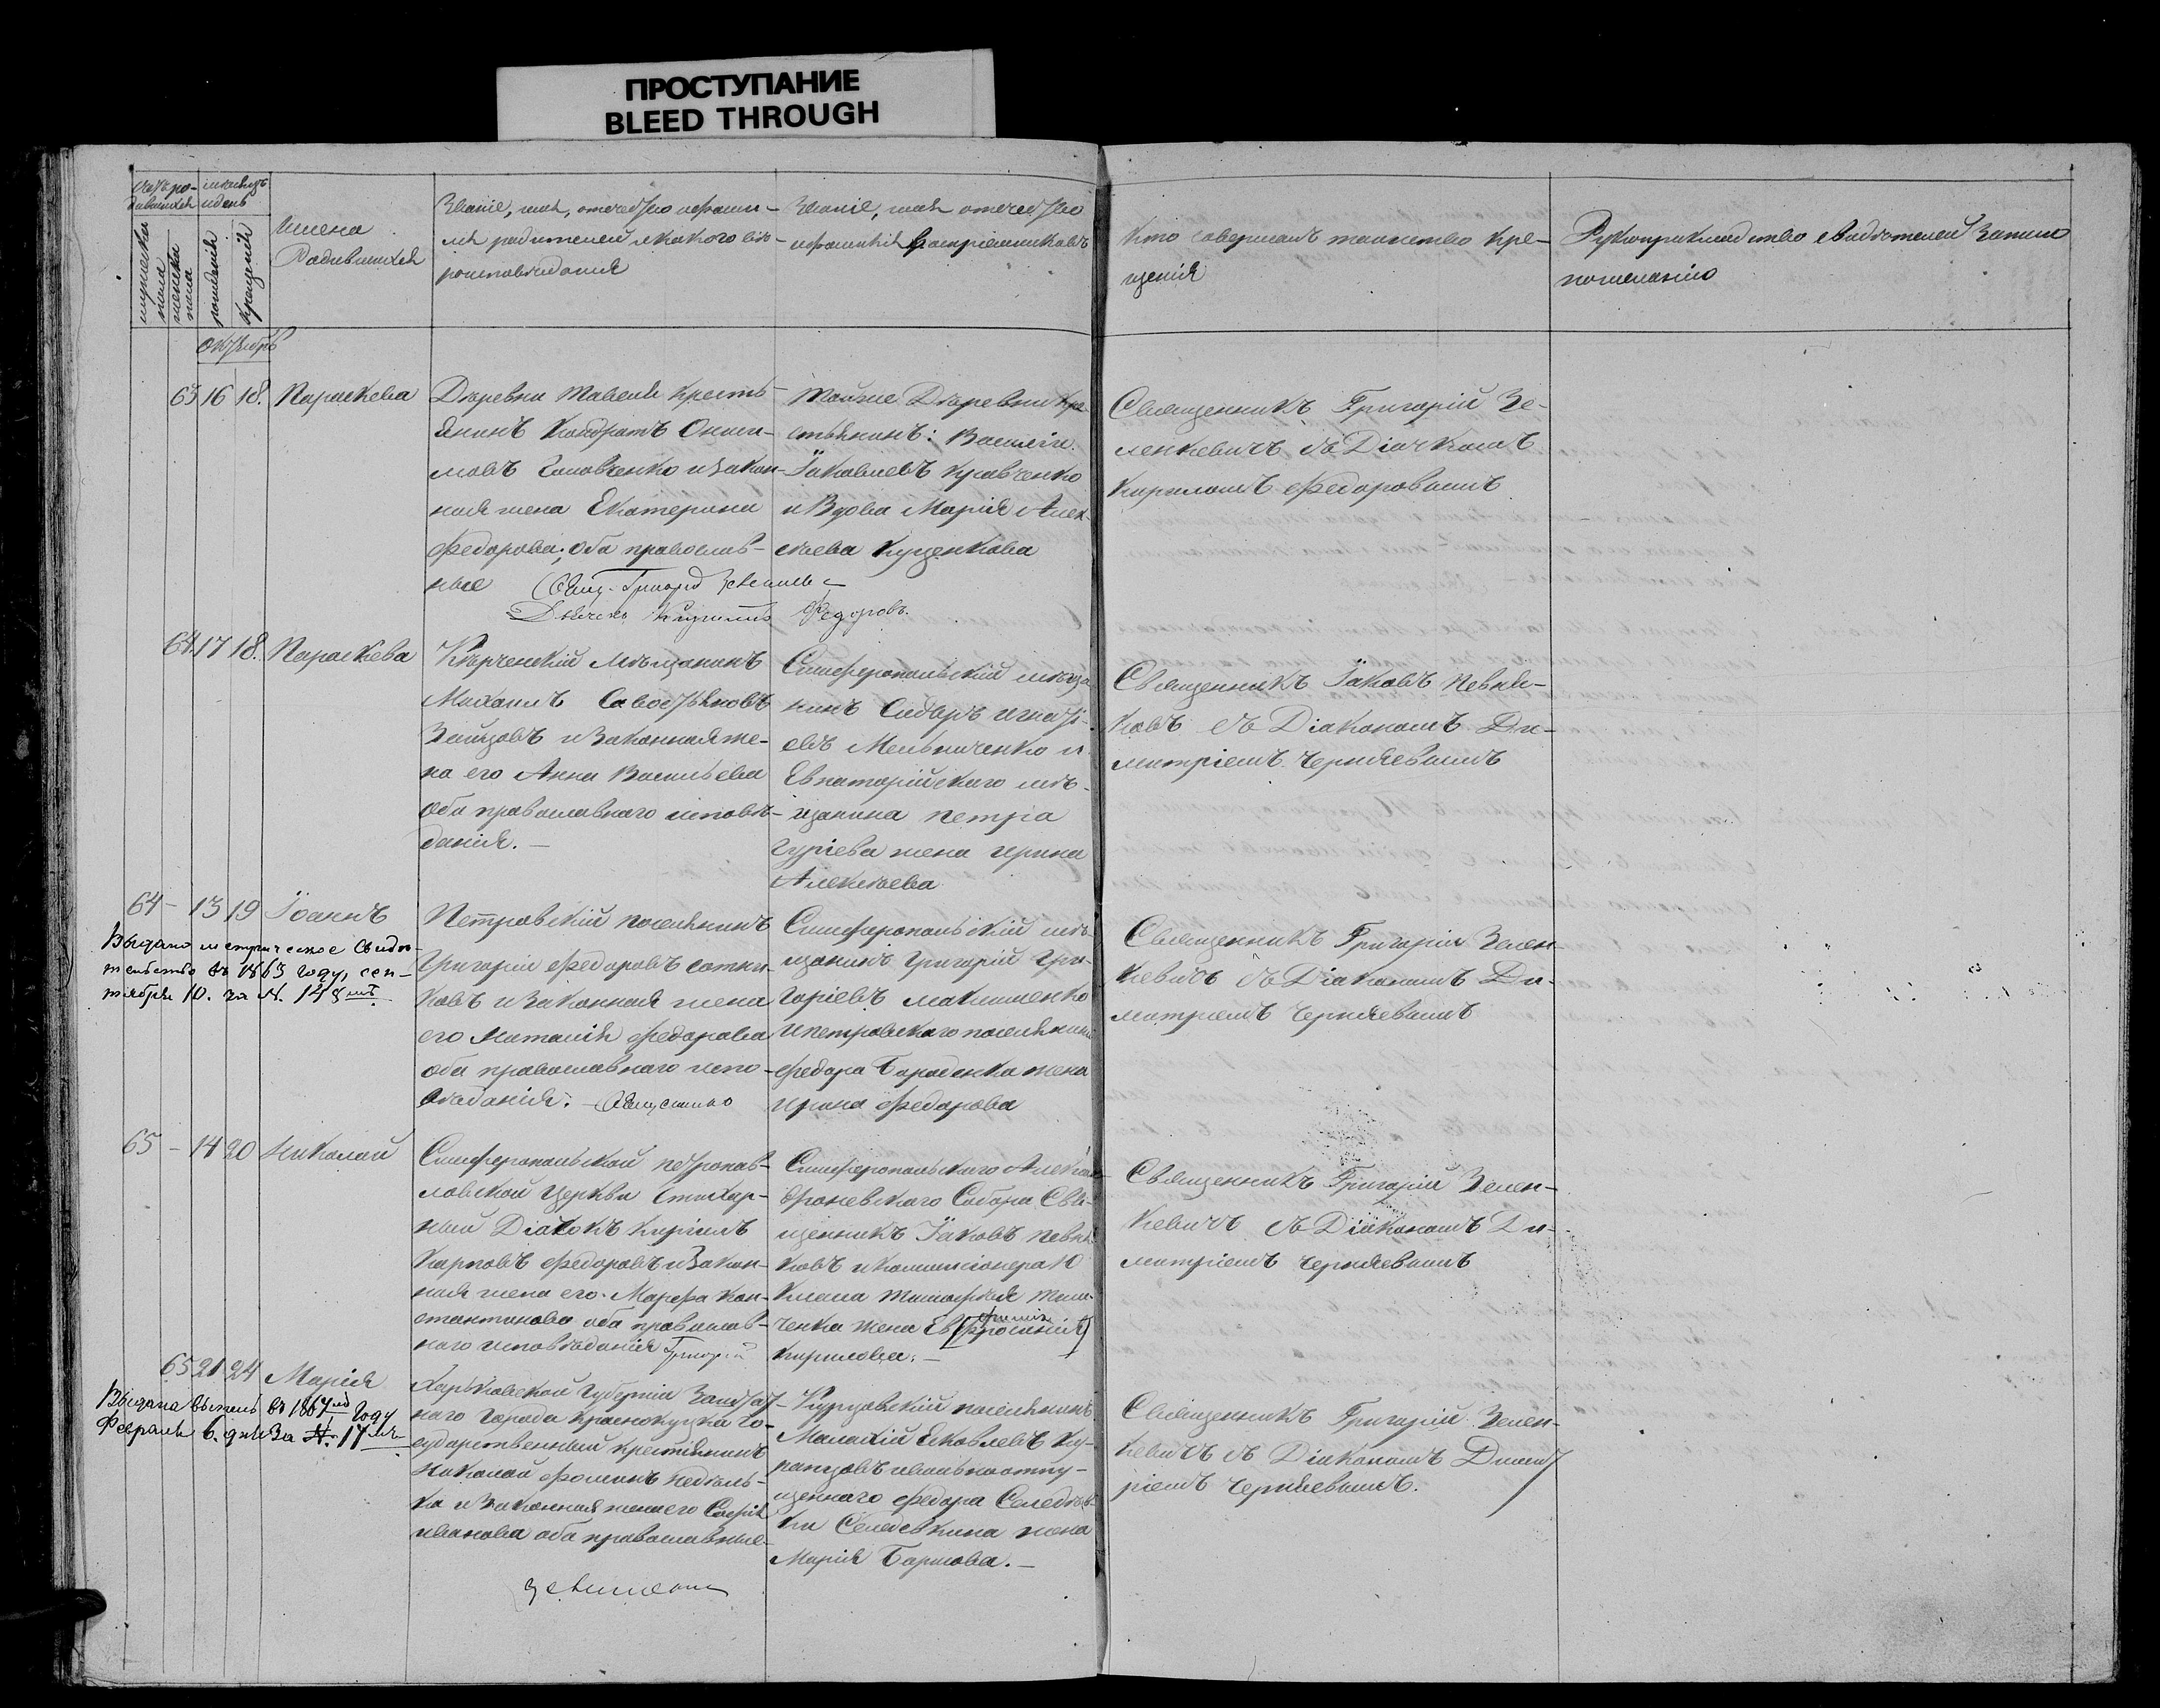 ПРОСТУПАНИЕ
BLEED THROUGH
Счетъ ро-
дившихся
мужеска
пола
женска
пола
мѣсяцъ
и день
рожденія
крещенія
Имена
Родившихся
Званіе, имя, отечество и фами-
лія родителей и какого вѣ-
роисповѣданія
Званіе, имя отечество
и фамилія воспріемниковъ
Кто совершалъ таинство кре-
щенія
Рукоприкладство свидѣтелей записи
по желанію
Октябрь
63 16 18. Параскева
Деревни Тавеля кресть-
янинъ Кондратъ Ониси-
мовъ Головченко и закон-
ная жена Екатерина
Федорова, оба православ-
ные
Свящ. Григорій
Дьячекъ Кириллъ Федоровъ.
Тойже Деревни кре-
стьянинъ: Василій
Іаковлевъ Кравченко
и Вдова Марія Алек-
сѣева Куценкова
Священникъ Григорій Зе-
ленкевичъ съ Діячкомъ
Кириломъ Федоровымъ
64. 17 18. Параскева
Керченскій мѣщанинъ
Михаилъ Савостьяновъ
Зайцовъ и Законная же-
на его Анна Васильева
оба православнаго исповѣ-
данія. —
Симферопольскій мѣща-
нинъ Сидоръ Игнаті-
евъ Мельниченко и
Евпаторійскаго мѣ-
щанина Петра
Гуріева жена Ирина
Алексѣева
Священникъ Іаковъ Певни-
ковъ съ Діакономъ Ди-
митріемъ Чернявымъ
64 — 13 19 Іоаннъ
Выдано метрическое свидѣ-
тельство въ 1863 году, сен-
тября 10. за №. 148мъ.
Петровскій поселянинъ
Григорій Федоровъ Сотни-
ковъ и Законная жена
его Наталія Федорова
оба православнаго испо-
вѣданія. —
Симферопольскій мѣ-
щанинъ Григорій Гри-
горіевъ Максименко
и петровскаго поселянина
Федора Бороденка жена
Ирина Федорова
Священникъ Григорій Зелен-
кевичъ съ Діакономъ Ди-
митріемъ Чернявымъ
65 — 14 20 Николай
Симферопольской петропав-
ловской Церкви Стихар-
ный Діячокъ Кирилъ
Карповъ Федоровъ и Закон-
ная жена его Марфа Кон-
стантинова оба православ-
наго исповѣданія Григорій
Симферопольскаго Алексан-
дроневскаго Собора Свя-
щенникъ Іаковъ Певни-
ковъ и комисіонера 10
Класа Тимофея Тим-
ченка жена Ев[фросинія]
Кирилова. —
Священникъ Григорій Зелен-
кевичъ съ Діакономъ Ди-
митріемъ Чернявымъ
65 21 24 Марія
Выдана выпись въ 1867мъ году
Февраля 6. дня За №. 17мъ
Харьковской Губерніи Заштат-
наго Города Краснокуцка го-
сударственный крестьянинъ
Николай Фоминъ Недѣль-
ка и Законная жена его Софія
Иванова оба православные
Курцовскій поселянинъ
Малахій Яковлевъ Ку-
ранцовъ и вольноотпу-
щеннаго Федора Селедев-
ки Селедевкина жена
Марія Борисова. —
Священникъ Григорій Зелен-
кевичъ съ Діакономъ Димит-
ріемъ Чернявымъ.